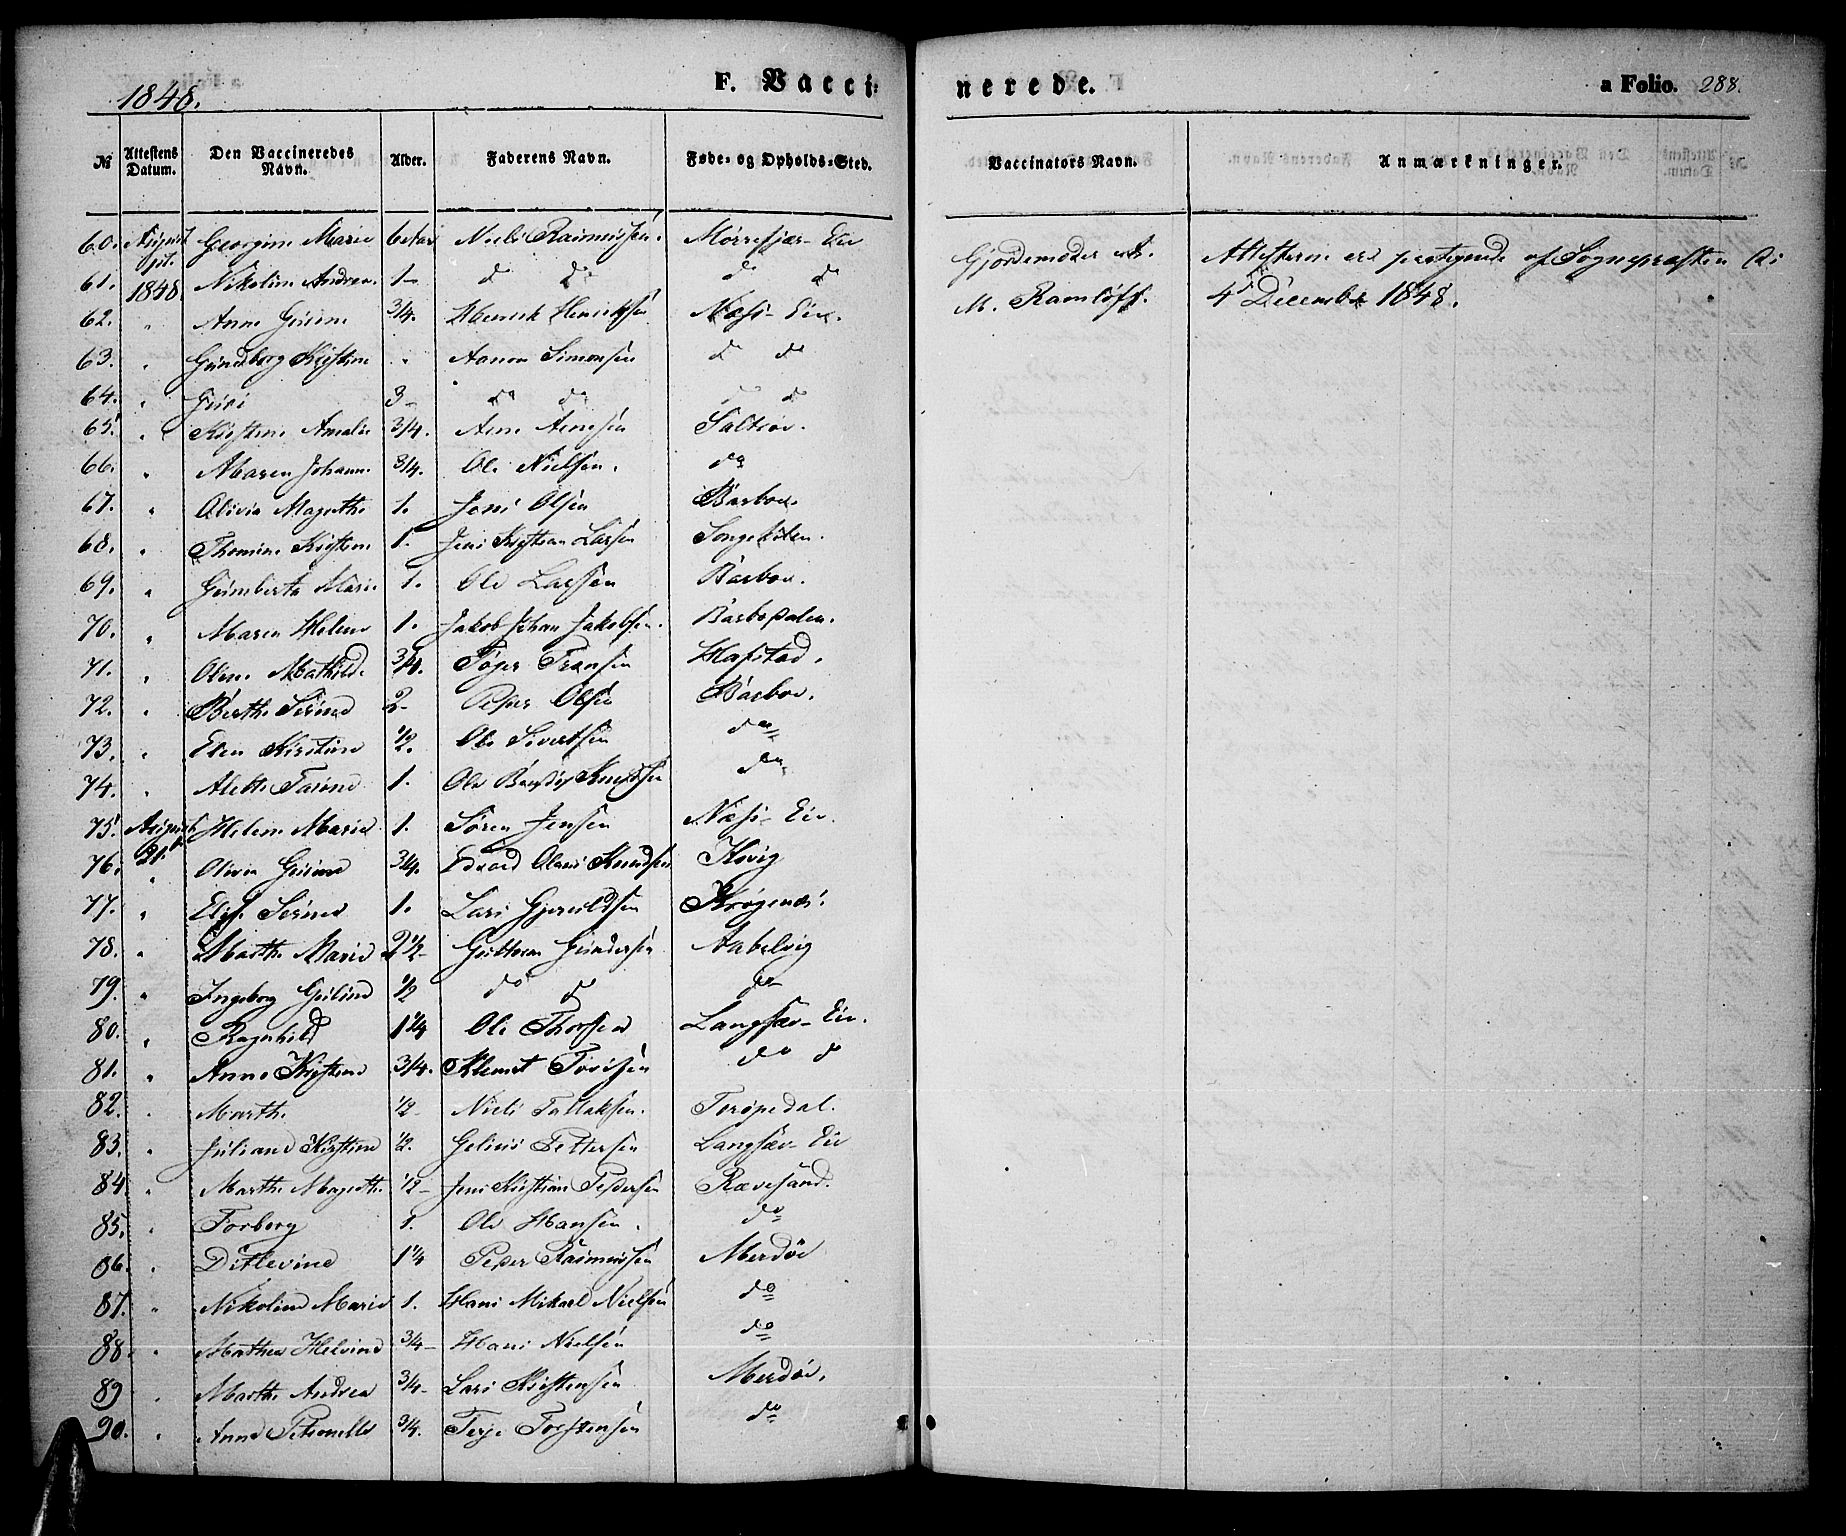 1848. F. Vacci: nerede. a Folio. 288.
№ Attestens Datum. Den Vaccineredes Navn. Alder. Faderens Navn. Føde- og Opholds-Sted. Vaccinators Navn. Anmærkninger.
60. August Georgine Marie 6 Niels Rasmussen. Mørrefjær- Gjordemoder
Attesterne ere af Sognepræsten
61. 1848 Nikoline Andrea. 1 - do do do do
M. Ramløff. 4 December 1848.
62. " Anne 3/4. Henrik Henriksen Næs-
63. " Gundborg Kirstine " Aanon Simonsen do do
64. " Guri 3 - do do do
65. " Kirstine Amalie 3/4. Arne Arnesen Saltrøe.
66. " Maren Johanne 3/4. Ole Nielsen. do
67. " Olivia Magrethe 1. Jens Olsen Barboe.
68. " Thomine Kirstine 1. Jens Kristian Larsen Songekilen.
69. " Gumberta Marie 1. Ole Larsen Barboe.
70. " Maren Helene 1. Jakob Johan Jakobsen. Barbodalen.
71. " Olene Mathilde 3/4. Fransen Harstad.
72. " Berthe Serine 2 - Peder Olsen Barboe.
73. " Elen Kirstine 1/2. Ole Sivertsen do
74. " Alette 1. Ole Knudsen do
75. August Helene Marie 1. Søren Jensen Næs-
76. 21. Olivia Gurine 3/4. Edvard Olaus Knudsen Kovig
77. " Serine 1. Lars Gjeruldsen Krøgenæs.
78. " Marthe Marie 2 1/2 - Guttorm Gundersen Aabelvig
79. " Ingeborg 1/2 do do do
80. " Ragnhild 1 1/4 Ole Thorsen Langsæv-
81. " Anne Kirstine 3/4. Klemet do do
82. " Marthe 1/2 - Niels Tallaksen. Torøpedal.
83. " Juliane Kirstine 1/2. Gelius Pettersen Langsæv-
84 " Marthe Magrethe 1/2 - Jens Kristian Pedersen Rævesand.
85. " Torborg 1. Ole Hansen. do
86. " Ditlevine 1 1/4 Peder Rasmussen Merdøe
87. " Nikoline Marie 1. Hans Mikael Nielsen do
88. " Mathea Helvine 3/4 - Hans Nielsen do
89 " Marthe Andrea 3/4 - Lars Kristensen Merdøe.
90. " Anne Petronelle 3/4. Terje Torstensen do